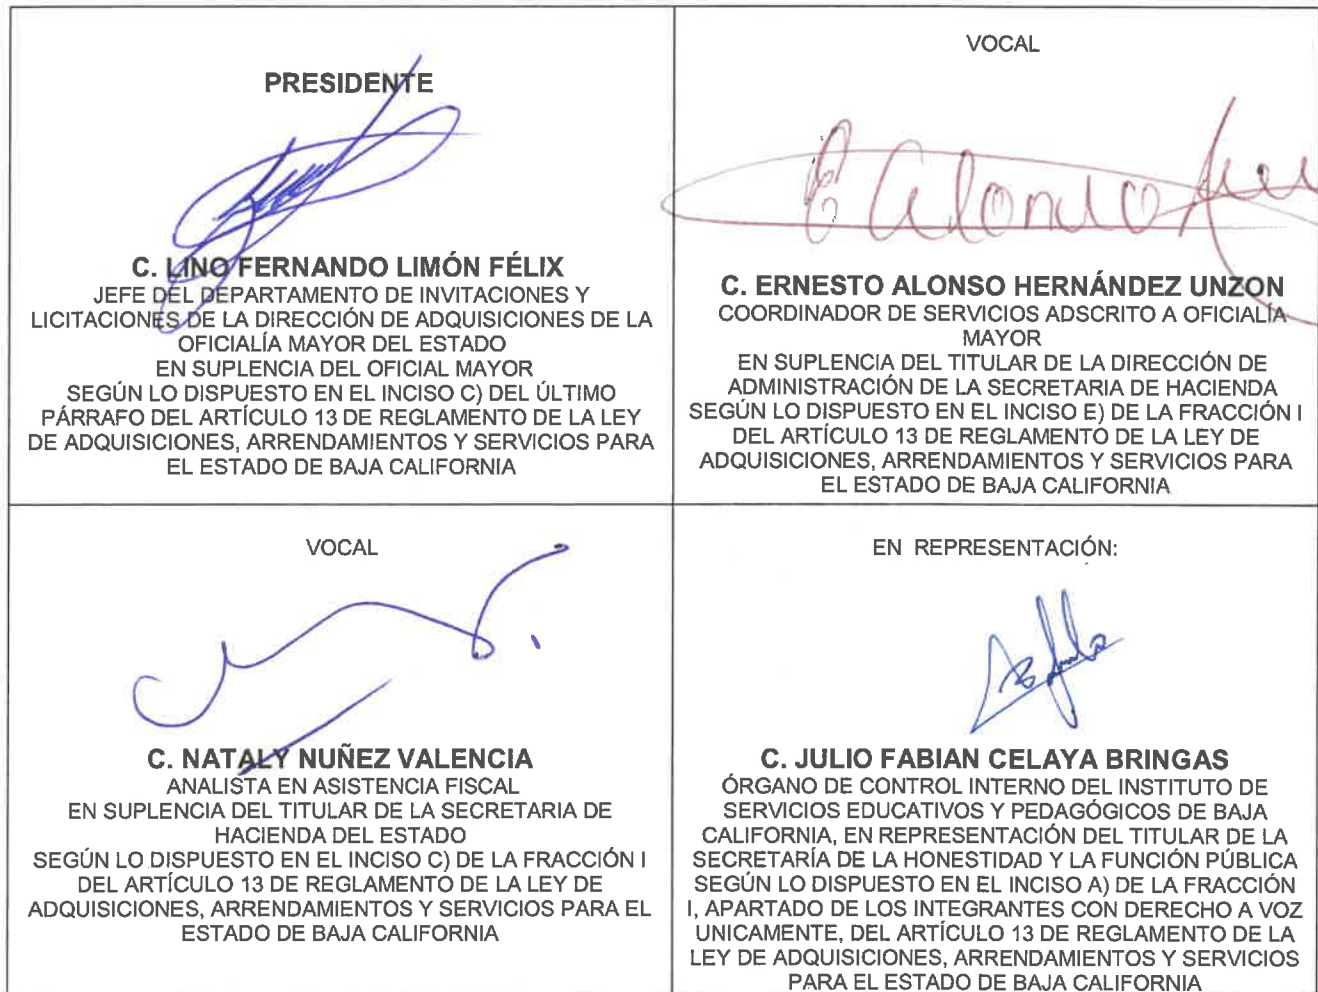 PRESIDENTE
C. LINO FERNANDO LIMÓN FÉLIX
JEFE DEL DEPARTAMENTO DE INVITACIONES Y
LICITACIONES DE LA DIRECCIÓN DE ADQUISICIONES DE LA
OFICIALÍA MAYOR DEL ESTADO
EN SUPLENCIA DEL OFICIAL MAYOR
SEGÚN LO DISPUESTO EN EL INCISO C) DEL ÚLTIMO
PÁRRAFO DEL ARTÍCULO 13 DE REGLAMENTO DE LA LEY
DE ADQUISICIONES, ARRENDAMIENTOS Y SERVICIOS PARA
EL ESTADO DE BAJA CALIFORNIA
VOCAL
E Alonso
C. ERNESTO ALONSO HERNÁNDEZ UNZON
COORDINADOR DE SERVICIOS ADSCRITO A OFICIALÍA
MAYOR
EN SUPLENCIA DEL TITULAR DE LA DIRECCIÓN DE
ADMINISTRACIÓN DE LA SECRETARIA DE HACIENDA
SEGÚN LO DISPUESTO EN EL INCISO E) DE LA FRACCIÓN I
DEL ARTÍCULO 13 DE REGLAMENTO DE LA LEY DE
ADQUISICIONES, ARRENDAMIENTOS Y SERVICIOS PARA
EL ESTADO DE BAJA CALIFORNIA
VOCAL
C. NATALY NUÑEZ VALENCIA
ANALISTA EN ASISTENCIA FISCAL
EN SUPLENCIA DEL TITULAR DE LA SECRETARIA DE
HACIENDA DEL ESTADO
SEGÚN LO DISPUESTO EN EL INCISO C) DE LA FRACCIÓN I
DEL ARTÍCULO 13 DE REGLAMENTO DE LA LEY DE
ADQUISICIONES, ARRENDAMIENTOS Y SERVICIOS PARA EL
ESTADO DE BAJA CALIFORNIA
EN REPRESENTACIÓN:
C. JULIO FABIAN CELAYA BRINGAS
ÓRGANO DE CONTROL INTERNO DEL INSTITUTO DE
SERVICIOS EDUCATIVOS Y PEDAGÓGICOS DE BAJA
CALIFORNIA, EN REPRESENTACIÓN DEL TITULAR DE LA
SECRETARÍA DE LA HONESTIDAD Y LA FUNCIÓN PÚBLICA
SEGÚN LO DISPUESTO EN EL INCISO A) DE LA FRACCIÓN
I, APARTADO DE LOS INTEGRANTES CON DERECHO A VOZ
UNICAMENTE, DEL ARTÍCULO 13 DE REGLAMENTO DE LA
LEY DE ADQUISICIONES, ARRENDAMIENTOS Y SERVICIOS
PARA EL ESTADO DE BAJA CALIFORNIA